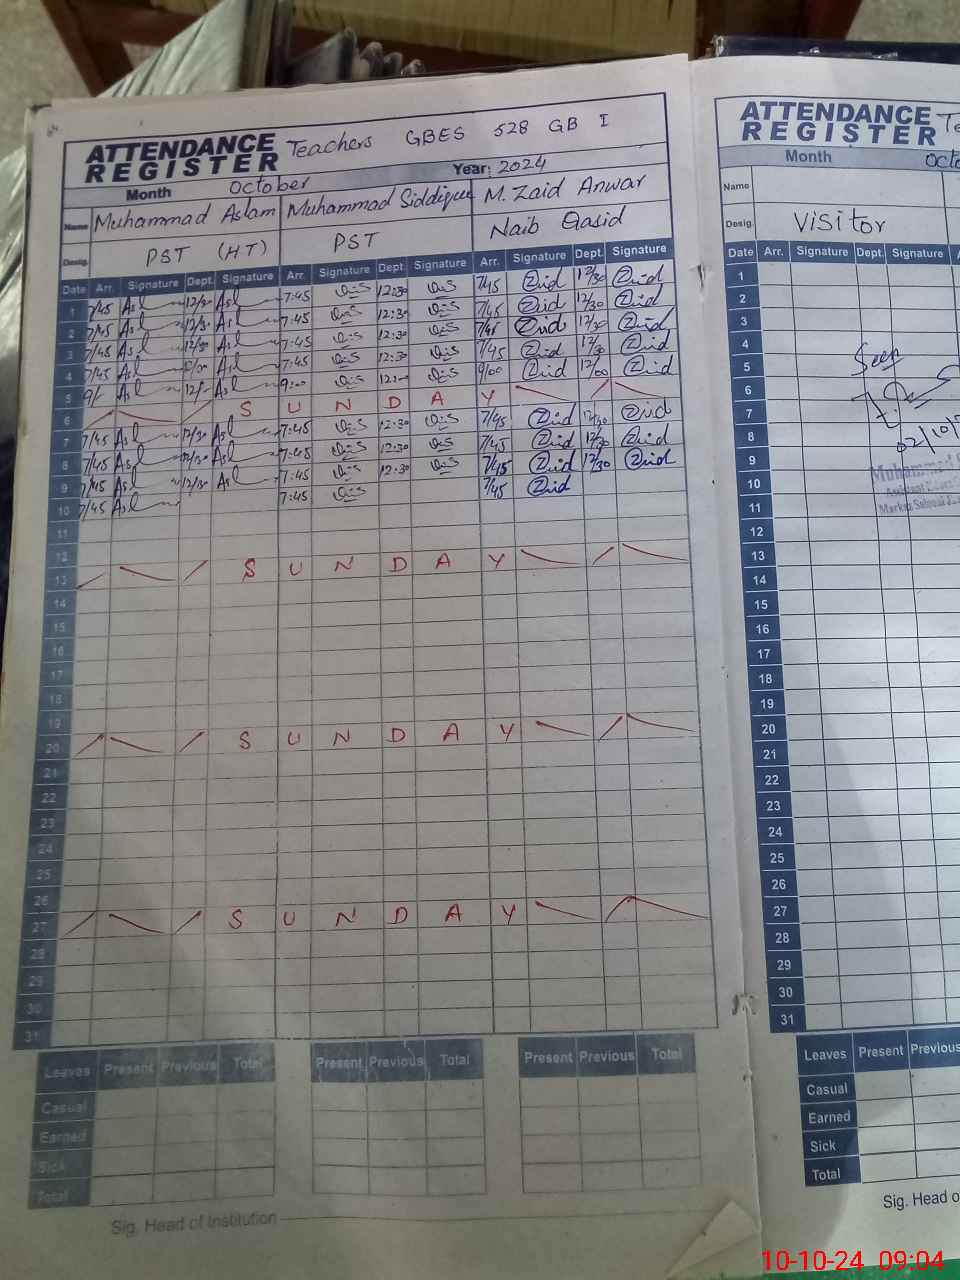 ATTENDANCE REGISTER Teachers GBES 528 GB I
Month October Year: 2024
Name Muhammad Aslam Muhammad Siddique M. Zaid Anwar
Desig. PST (HT) PST Naib Qasid
Date Arr. Signature Dept. Signature Arr. Signature Dept. Signature Arr. Signature Dept. Signature
1 7/45 Asl 12/30 Asl 7:45 12:30 7/45 Zaid 12/30 Zaid
2 7/45 Asl 12/30 Asl 7:45 12:30 7/45 Zaid 12/30 Zaid
3 7/45 Asl 12/30 Asl 7:45 12:30 7/45 Zaid 12/30 Zaid
4 7/45 Asl Asl 7:45 12:30 7/45 Zaid 12/30 Zaid
5 Asl Asl 9:00 9/00 Zaid 12/00 Zaid
6 S U N D A Y
7 7/45 Asl 12/30 Asl 7:45 12:30 7/45 Zaid 12/30 Zaid
8 7/45 Asl 12/30 Asl 7:45 12:30 7/45 Zaid 12/30 Zaid
9 7/45 Asl 12/30 Asl 7:45 12:30 7/45 Zaid 12/30 Zaid
10 7/45 Asl 7:45 7/45 Zaid
11
12
13 S U N D A Y
14
15
16
17
18
19
20 S U N D A Y
21
22
23
24
25
26
27 S U N D A Y
28
29
30
31
Leaves Present Previous Total Present Previous Total Present Previous Total
Casual
Earned
Sick
Total
Sig. Head of Institution
ATTENDANCE REGISTER
Month
Name
Desig. Visitor
Date Arr. Signature Dept. Signature
1
2
3
4
5 Seen
6
7
8 02/10/
9
10
11
12
13
14
15
16
17
18
19
20
21
22
23
24
25
26
27
28
29
30
31
Leaves Present Previous
Casual
Earned
Sick
Total
Sig. Head
10-10-24 09:04